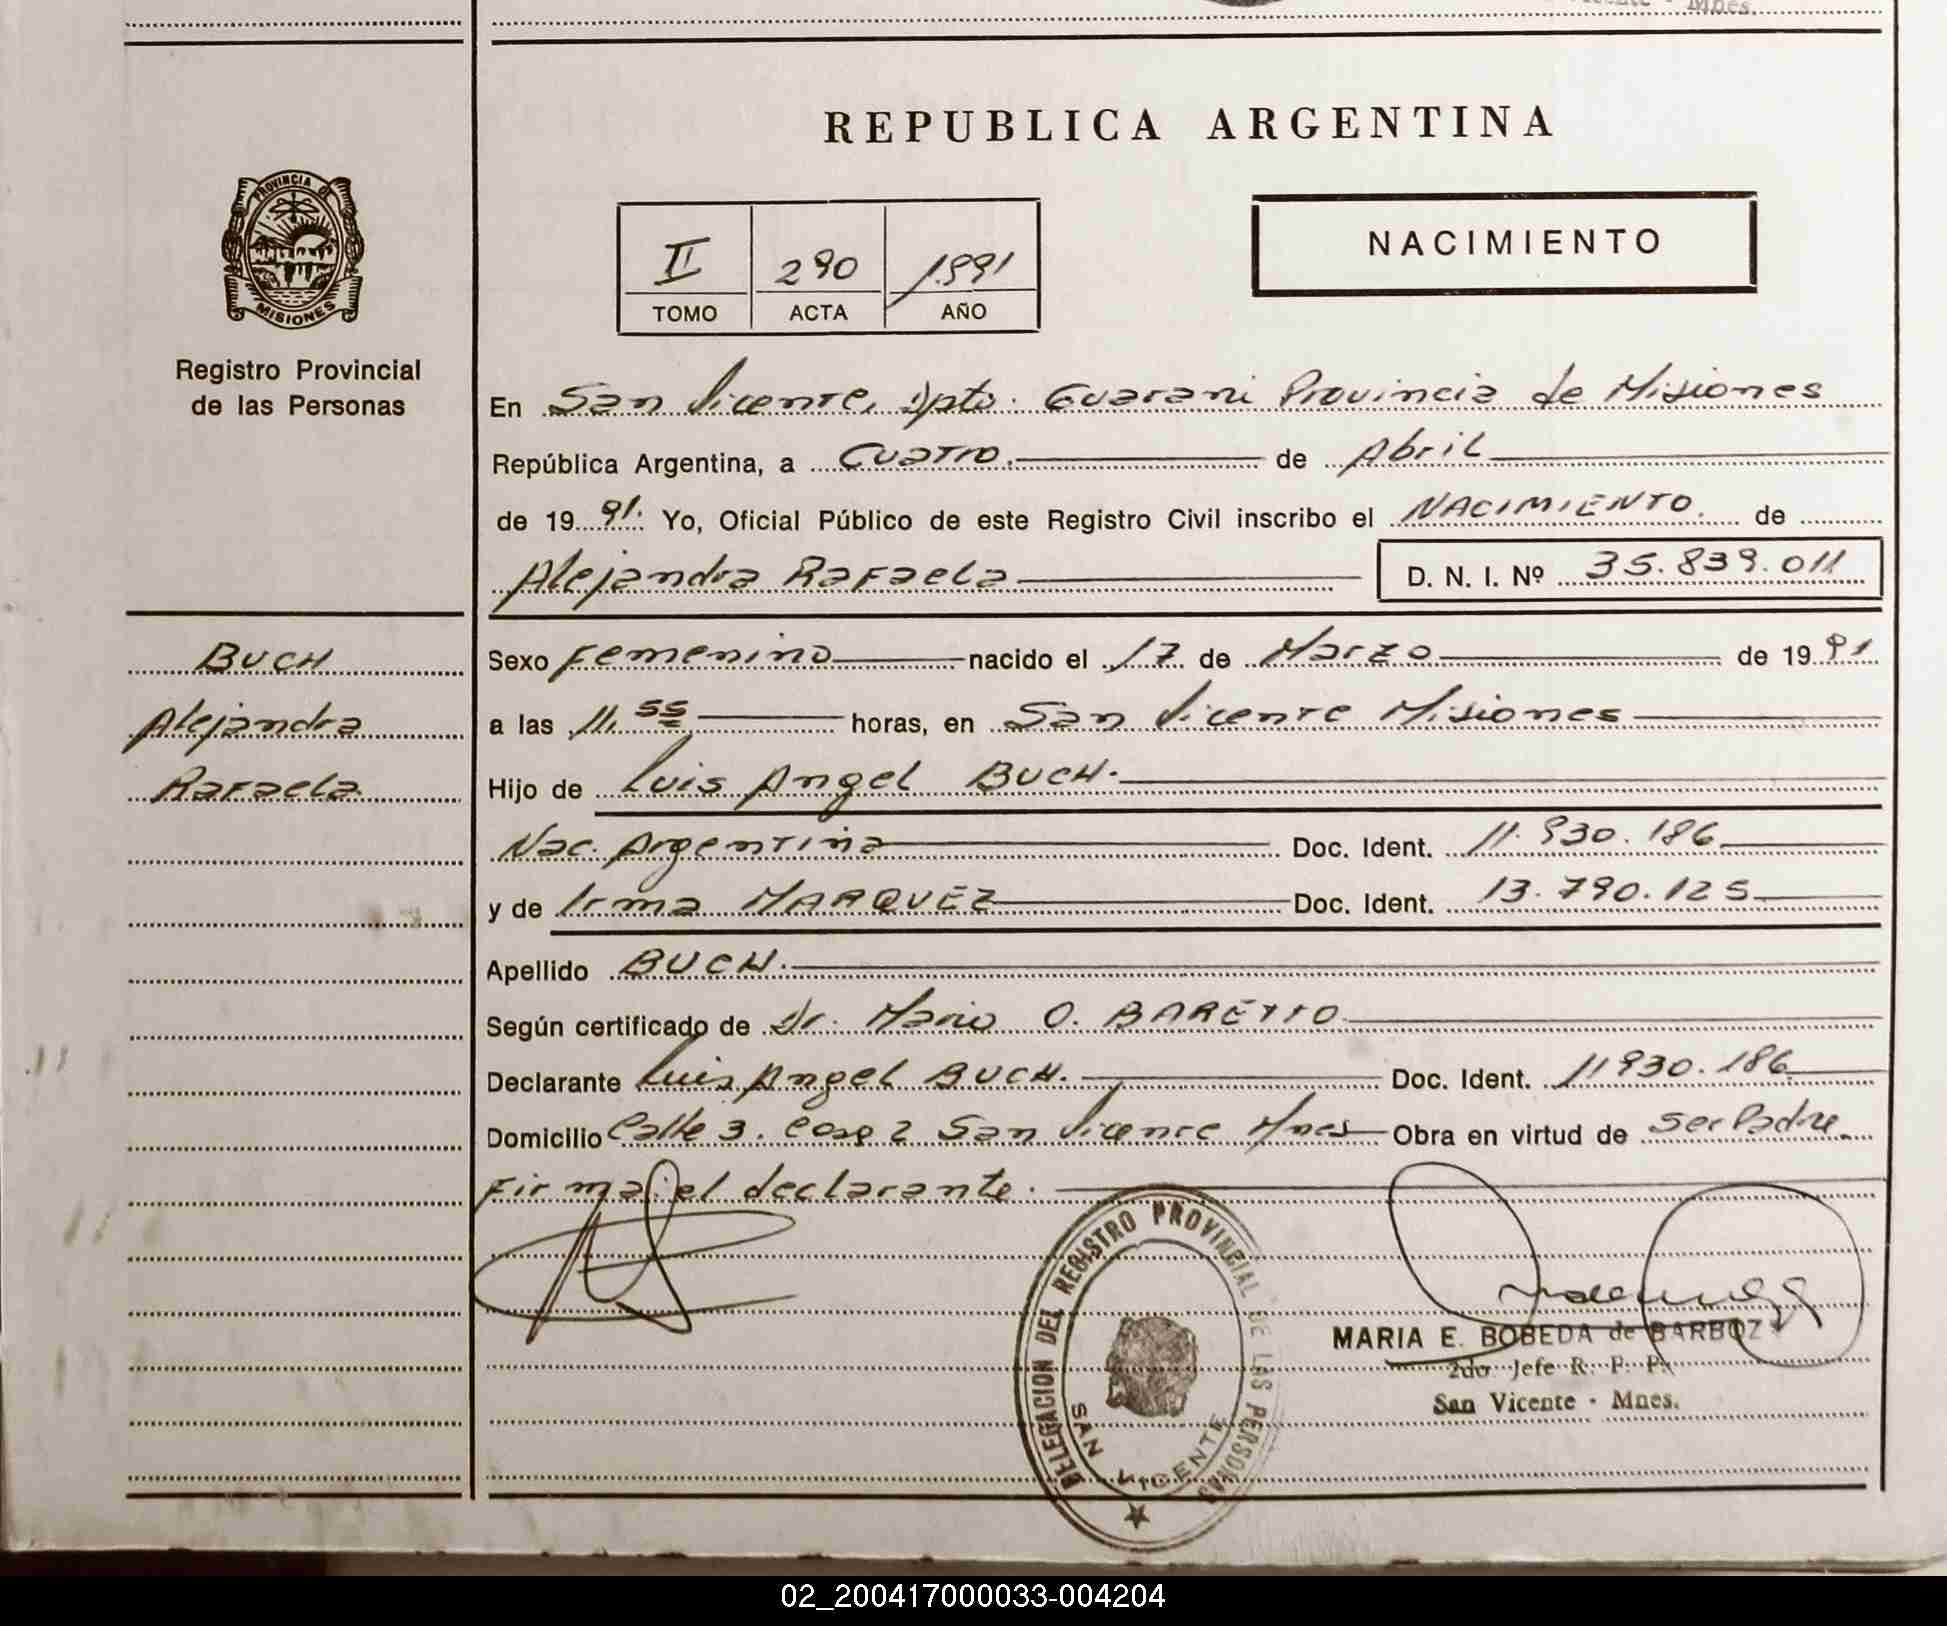 Mnes.
REPUBLICA ARGENTINA
PROVINCIA DE
MISIONES
Registro Provincial
de las Personas
II 290 1991
TOMO ACTA AÑO
NACIMIENTO
En San Vicente, Dpto. Guarani Provincia de Misiones
República Argentina, a Cuatro. de Abril
de 1991. Yo, Oficial Público de este Registro Civil inscribo el NACIMIENTO. de
Alejandra Rafaela D. N. I. Nº 35.839.011
BUCH
Alejandra
Rafaela
Sexo Femenino nacido el 17 de Marzo de 1991
a las 11.55 horas, en San Vicente Misiones
Hijo de Luis Angel BUCH.
Nac. Argentina Doc. Ident. 11.930.186
y de Irma MARQUEZ Doc. Ident. 13.790.125
Apellido BUCH.
Según certificado de Dr. Mario O. BARETTO
Declarante Luis Angel BUCH. Doc. Ident. 11930.186
Domicilio Calle 3. Casa 2 San Vicente Mnes Obra en virtud de Ser Padre.
Firma: el declarante.
DELEGACION DEL REGISTRO PROVINCIAL DE LAS PERSONAS
SAN VICENTE
MARIA E. BOBEDA de BARBOZ
2do Jefe R. P. P.
San Vicente - Mnes.
02_200417000033-004204